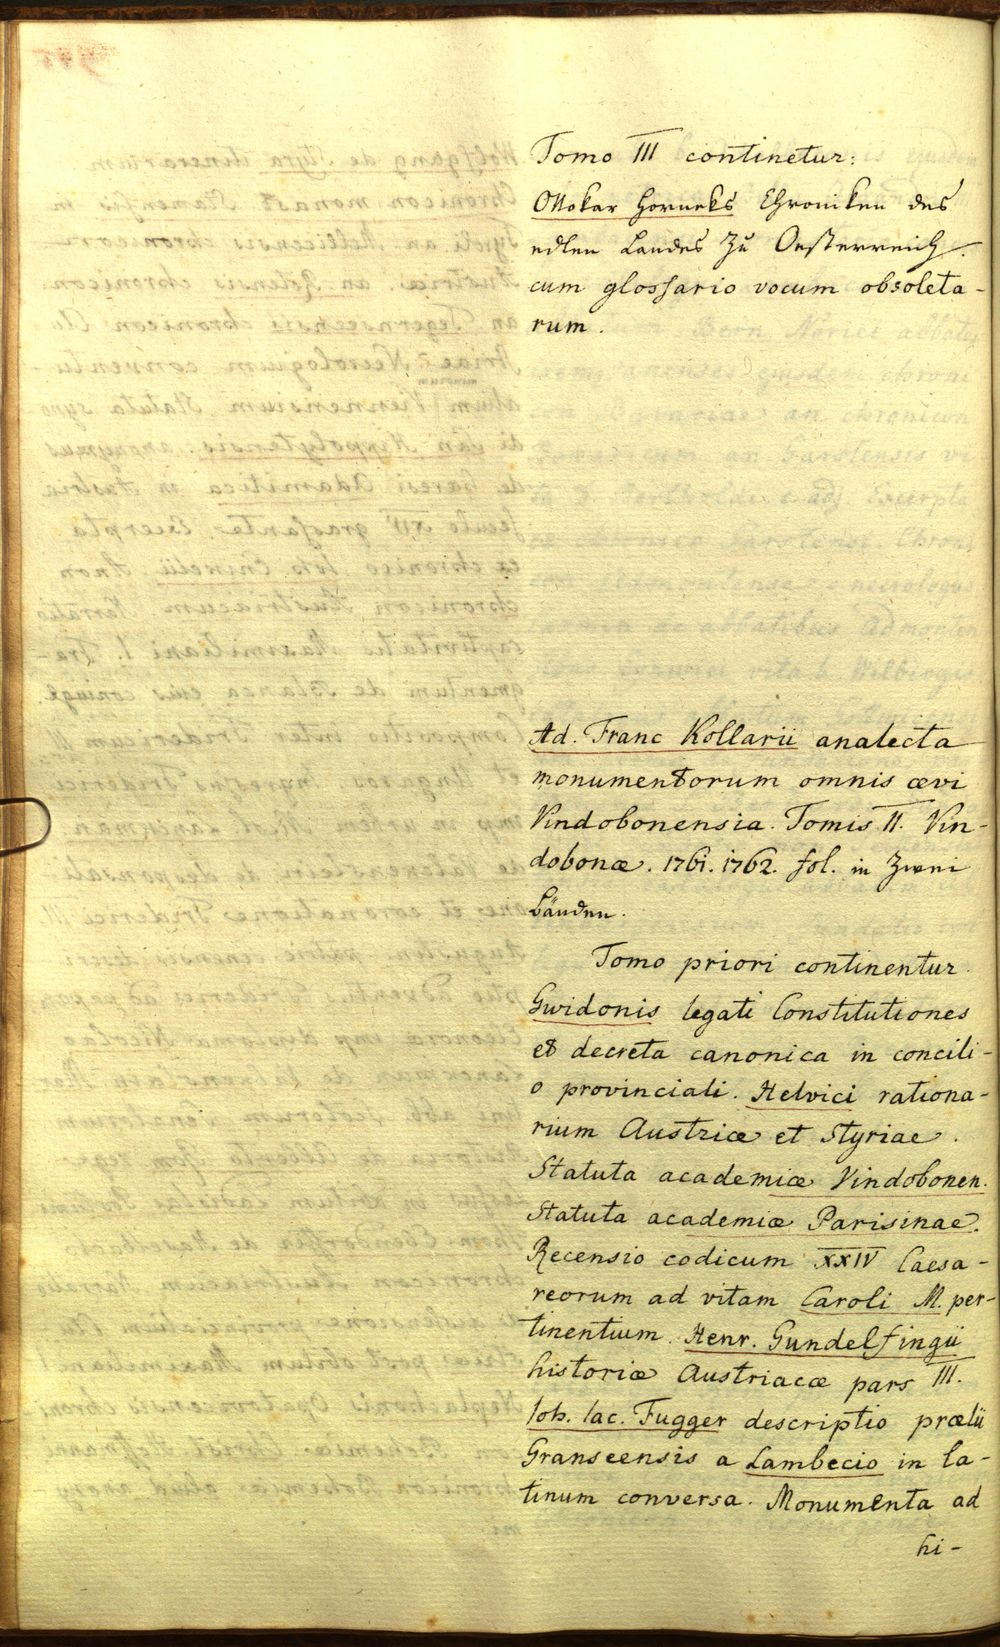 Tomo III continetur:
Ottokar Horneks Chroniken des
edlen Landes zu Oesterreich.
cum glossario vocum obsoleta-
rum.
Ad. Franc Kollarii analecta
monumentorum omnis ævi
Vindobonensia. Tomis II. Vin-
dobonæ. 1761. 1762. fol. in zwei
Bänden.
Tomo priori continentur
Gwidonis legati Constitutiones
et decreta canonica in concili-
o provinciali. Helvici rationa-
rium Austriæ et Styriae.
Statuta academiæ Vindobonen.
Statuta academiæ Parisinae.
Recensio codicum XXIV Caesa-
reorum ad vitam Caroli M. per-
tinentium. Henr. Gundelfingii
historiæ Austriacæ pars III.
Ioh. Iac. Fugger descriptio prælii
Granseensis a Lambecio in la-
tinum conversa. Monumenta ad
hi-